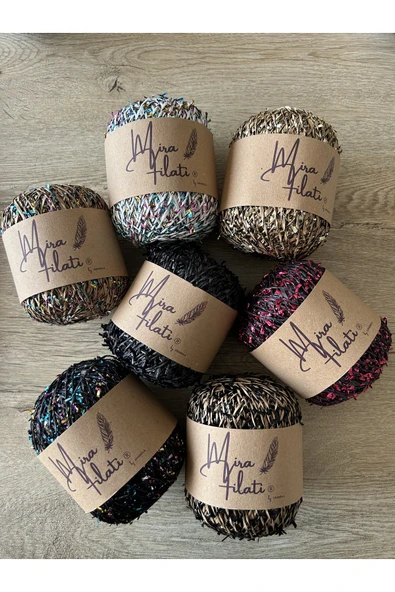 Mira
Filati ®
by
Mira
Filati ®
by
Mira
Filati ®
by
Mira
Filati ®
by
Mira
Filati ®
by
Mira
Filati ®
by
Mira
Filati ®
by